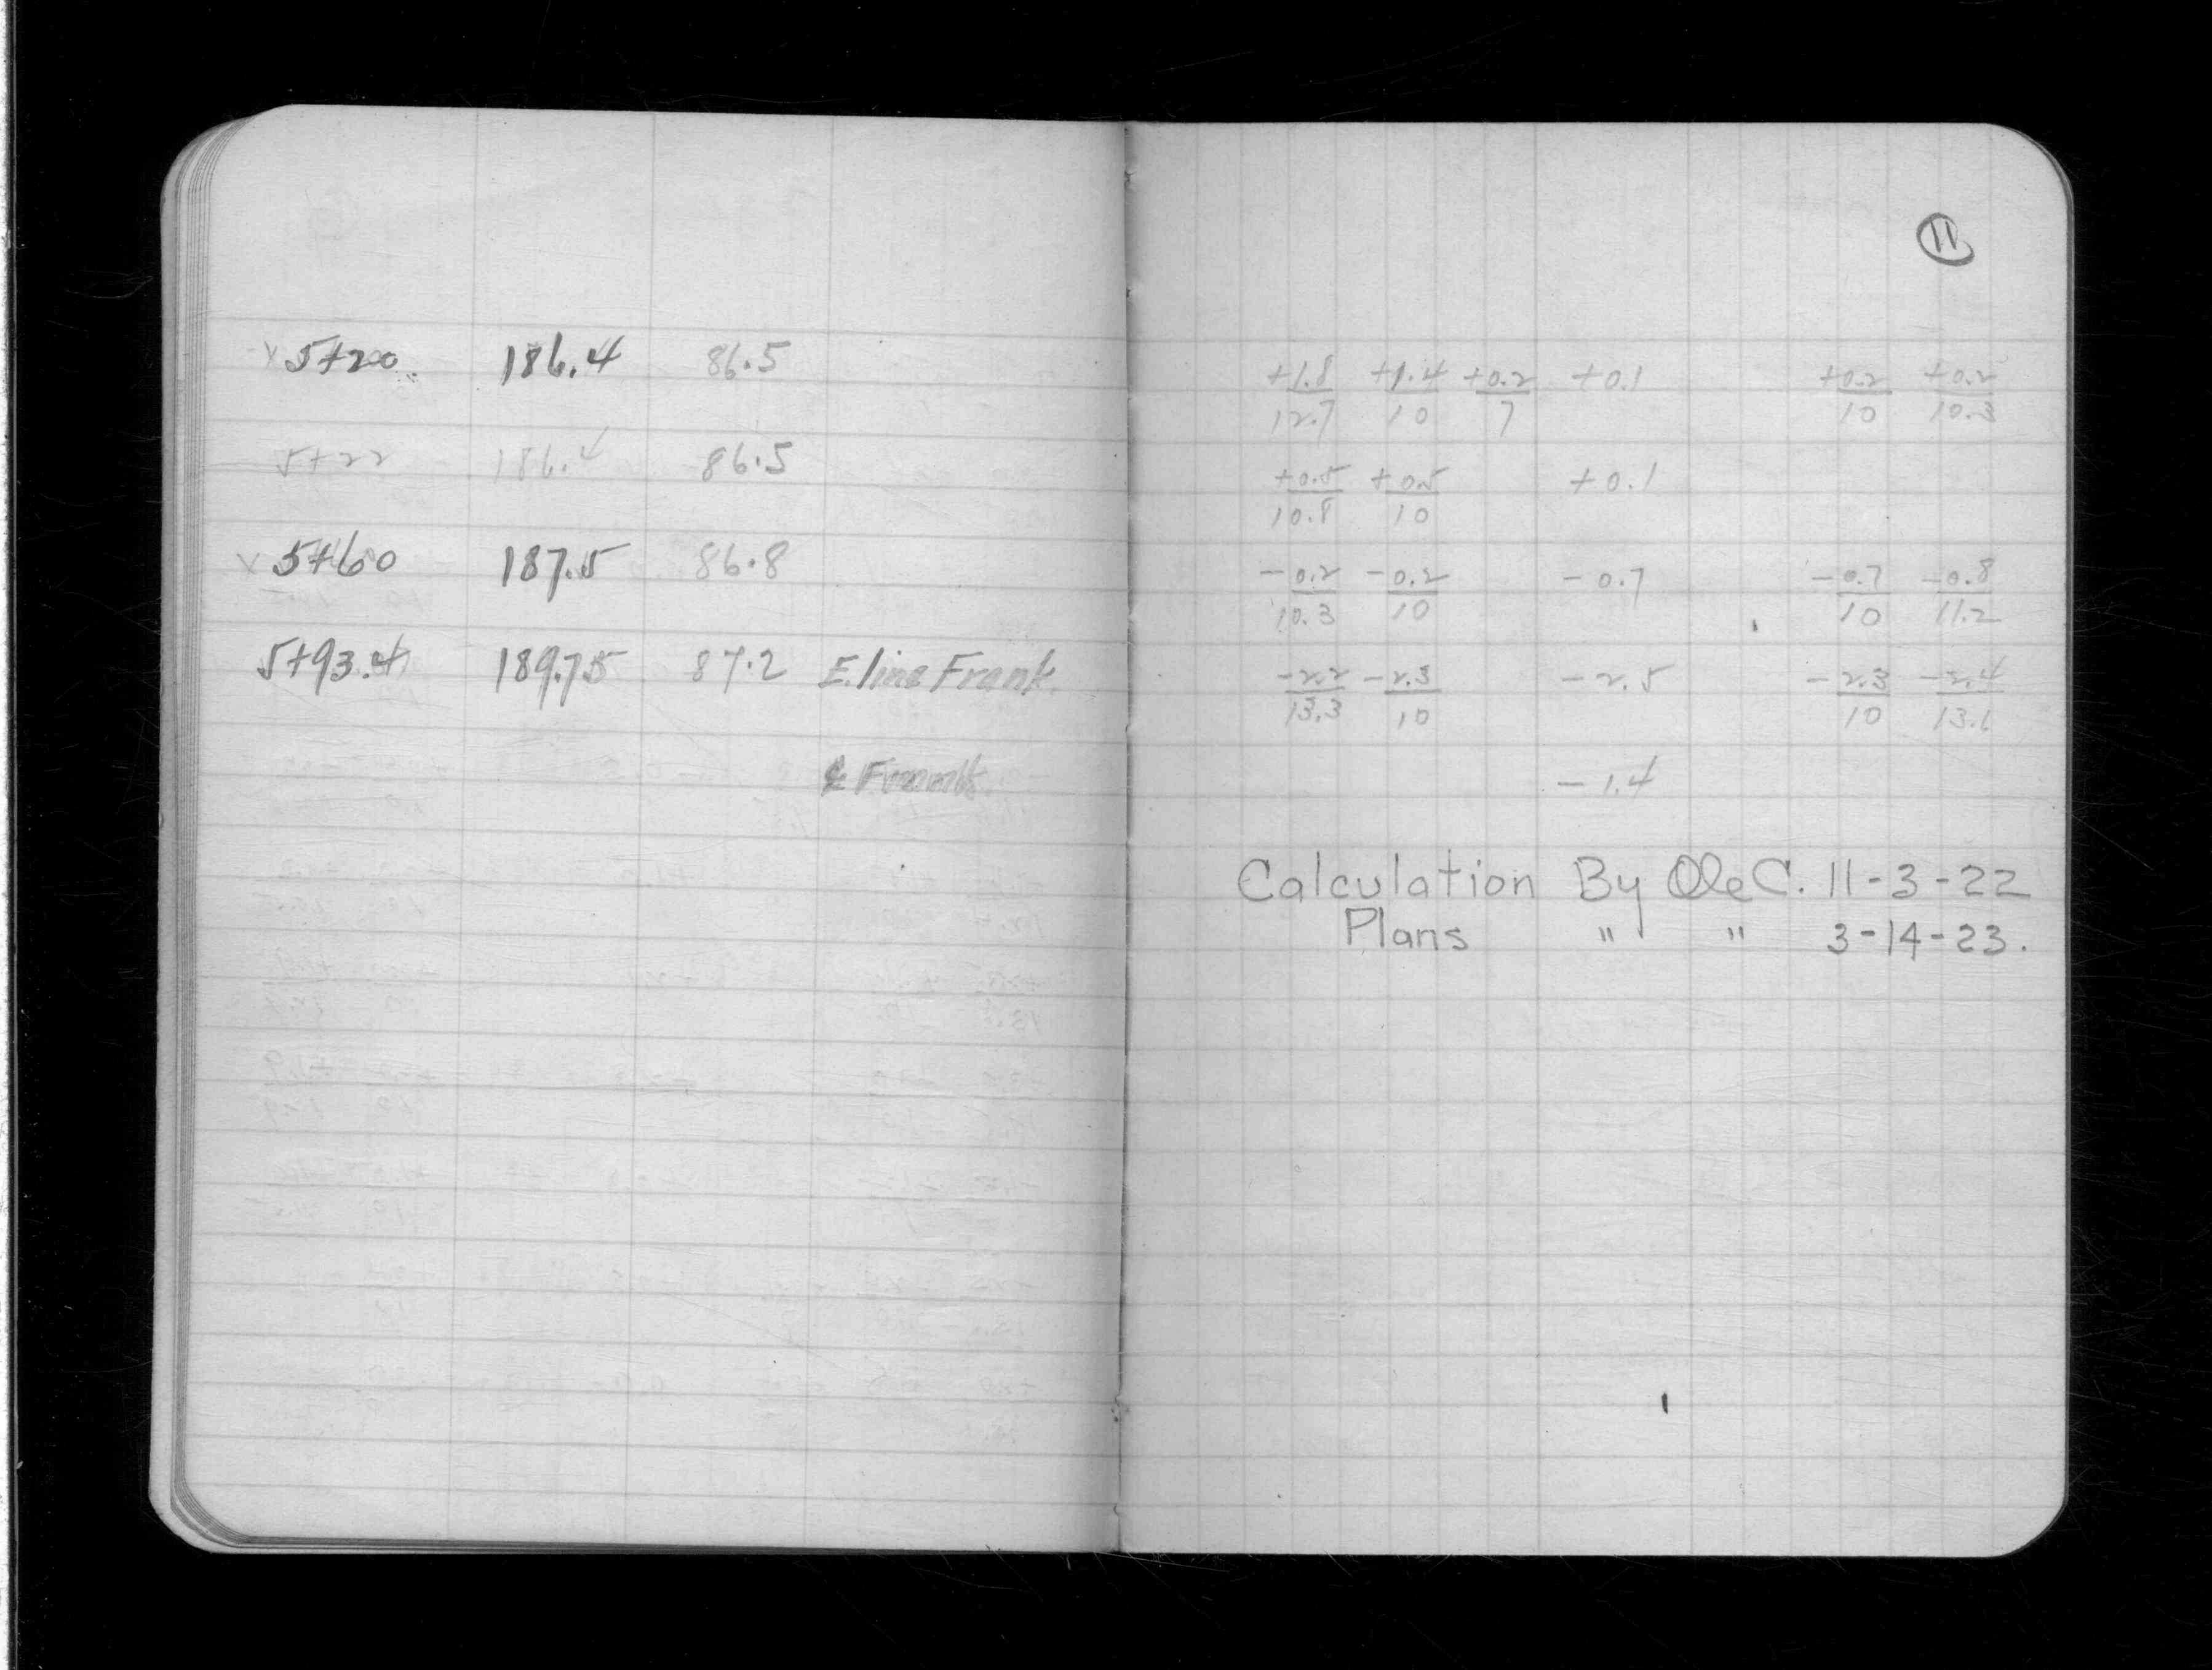 11
x 5+20. 186.4 86.5
5+22 186.4 86.5
x 5+60 187.5 86.8
5+93.4 189.75 87.2 E. line Frank.
+1.8 +1.4 +0.2 +0.1 +0.2 +0.2
12.7 10 7 10 10.3
+0.5 +0.5 +0.1
10.8 10
-0.2 -0.2 -0.7 -0.7 -0.8
10.3 10 10 11.2
-2.2 -2.3 -2.5 -2.3 -2.4
13.3 10 10 13.1
-1.4
Calculation By Ole C. 11-3-22
Plans " " 3-14-23.